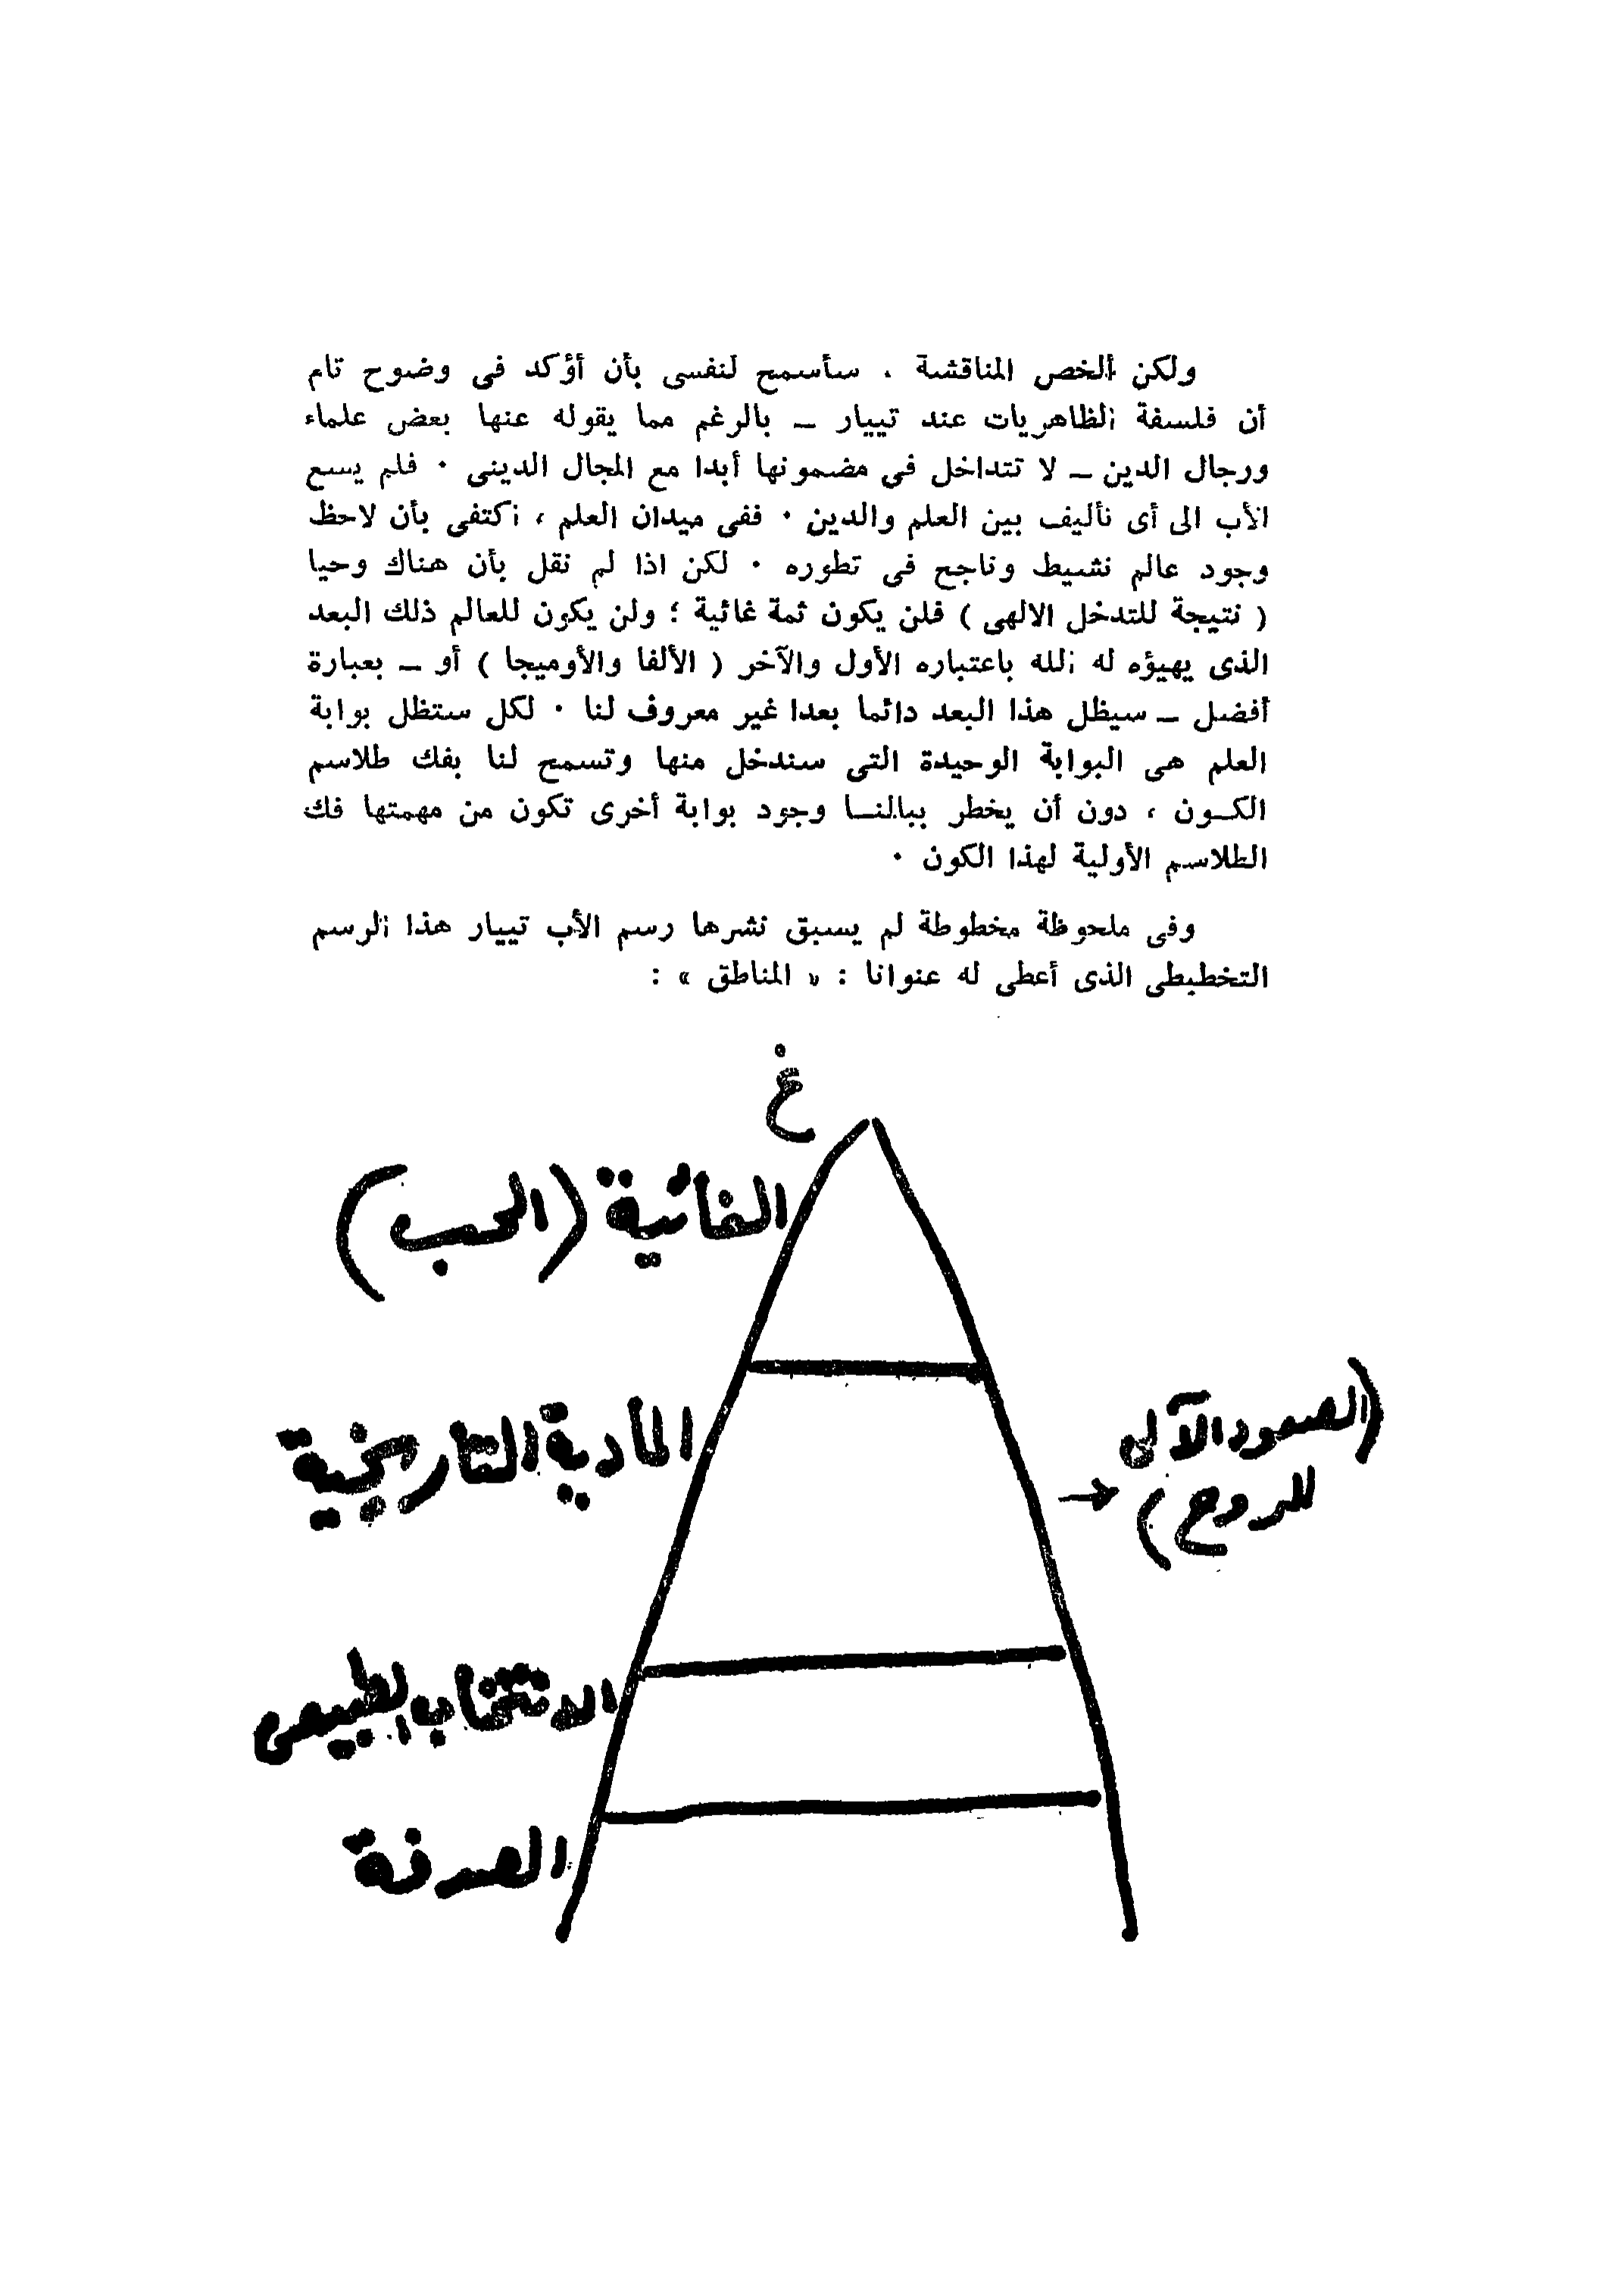 ولكن ألخص المناقشة ، سأسمح لنفسى بأن أؤكد فى وضوح تام
أن فلسفة الظاهريات عند تييار ـ بالرغم مما يقوله عنها بعض علماء
ورجال الدين ـ لا تتداخل فى مضمونها أبدا مع المجال الدينى . فلم يسع
الأب الى أى تأليف بين العلم والدين . ففى ميدان العلم ، اكتفى بأن لاحظ
وجود عالم نشيط وناجح فى تطوره . لكن اذا لم نقل بأن هناك وحيا
( نتيجة للتدخل الالهى ) فلن يكون ثمة غائية ؛ ولن يكون للعالم ذلك البعد
الذى يهيؤه له الله باعتباره الأول والآخر ( الألفا والأوميجا ) أو ـ بعبارة
أفضل ـ سيظل هذا البعد دائما بعدا غير معروف لنا . لكل ستظل بوابة
العلم هى البوابة الوحيدة التى سندخل منها وتسمح لنا بفك طلاسم
الكــون ، دون أن يخطر ببالنــا وجود بوابة أخرى تكون من مهمتها فك
الطلاسم الأولية لهذا الكون .
وفى ملحوظة مخطوطة لم يسبق نشرها رسم الأب تييار هذا الرسم
التخطيطى الذى أعطى له عنوانا : « المناطق » :
غ
الغائية (الحب)
المادية التاريخية
(الصعود الآلى
للروح)
الانتخاب الطبيعى
الصدفة